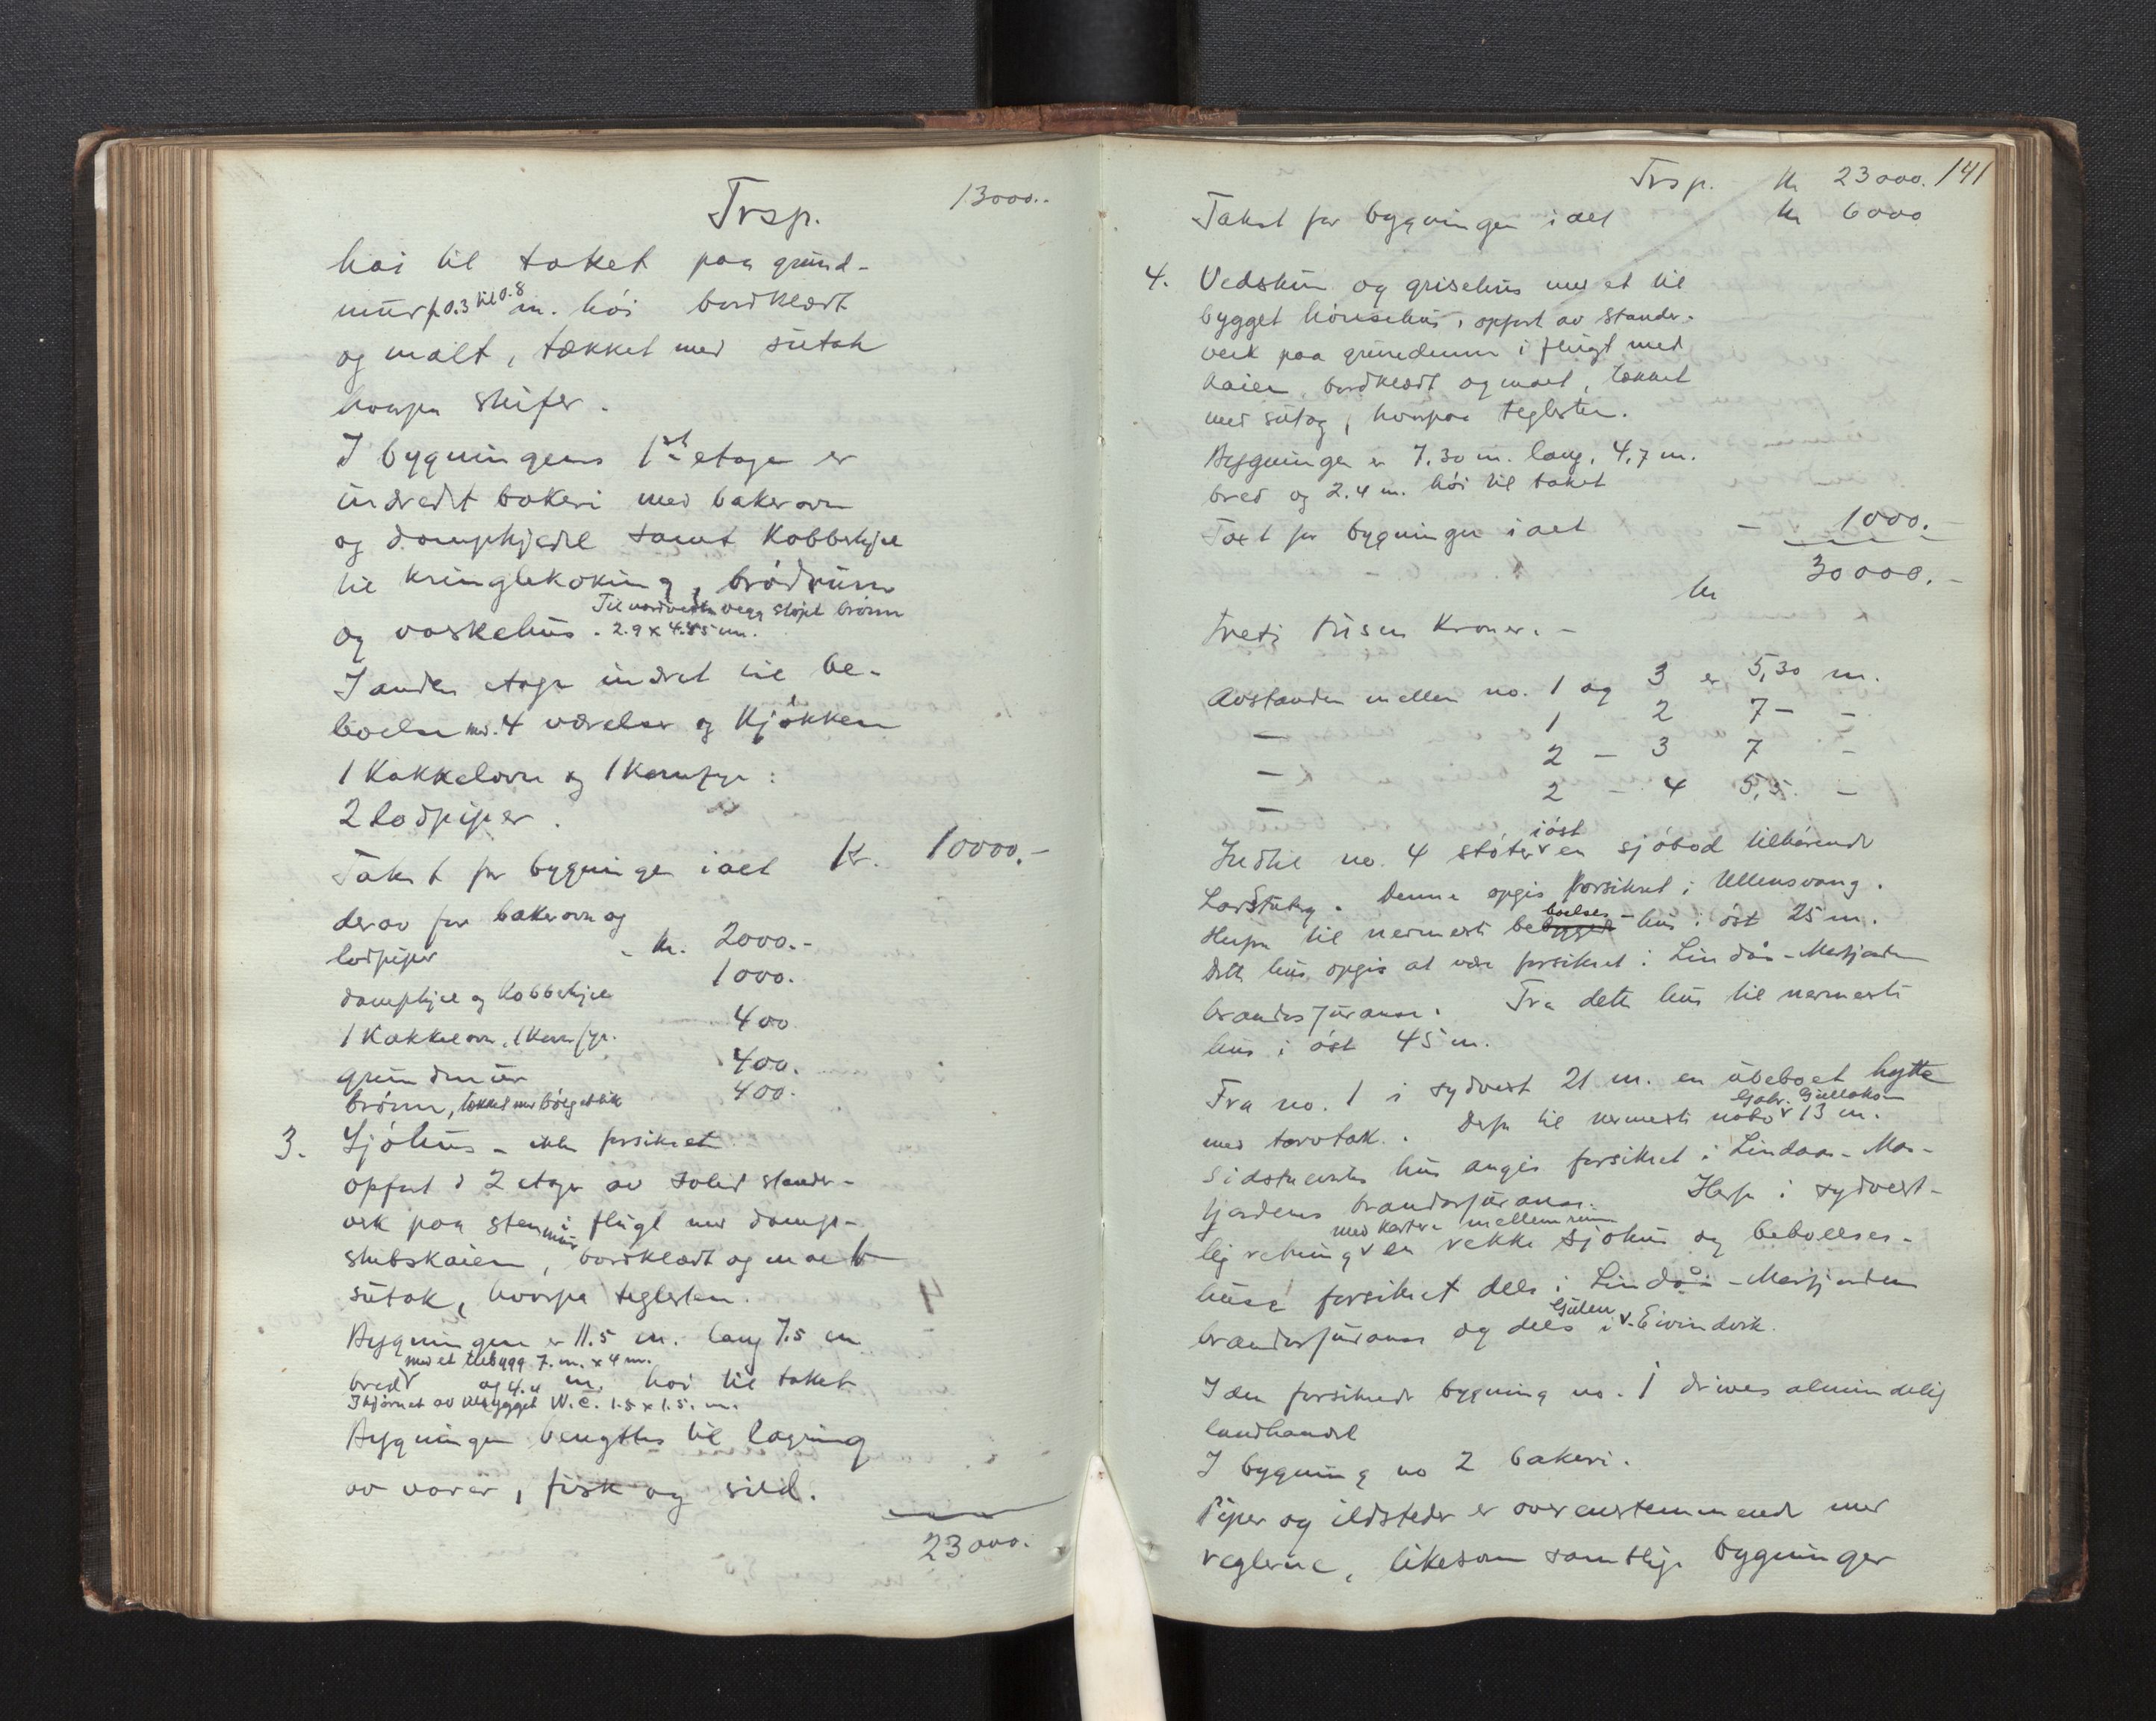 Trsp. 13000.-
høi til taket paa grund-
mur fr 0.3 til 0.8 m. høi bordklædt
og malt, tækket med sutak
hvorpaa skifer.
I bygningens 1ste etage er
indredet bakeri med bakerovn
og dampkjedel samt Kobberkjel
til Kringlekoking, brødrum
Til nordvestre vegg støpt brønn
og vaskehus. 2.9 x 4.45 m.
I anden etage indret til be-
boelse m. 4 værelser og Kjøkken
1 Kakkelovn og 1 Komfyr:
2 lodpiper.
Takst for bygningen ialt Kr. 10000.-
derav for bakerovn og
lodpiper - kr. 2000.-
dampkjel og Kobberkjel 1000.
1 Kakkelovn, 1 Komfyr. 400
grundmur 400.
brønn, tækket med bølgeblik 400.
3. Sjøhus - ikke forsikret
opført i 2 etager av solid stender-
verk paa stenmur i flugt med damp-
skibskaien, bordklædt og malt
sutak, hvorpaa teglsten.
Bygningen er 11.5 m. lang 7.5 m
med et tilbygg 7. m. x 4 m.
bred og 4.4 m. høi til taket
I hjørnet av tilbygget W.C. 1.5 x 1.5. m.
Bygningen benyttes til lagring
av varer, fisk og sild.
23000.
Trsp. kr 23000. 141
Takst for bygningen ialt kr 6000
4. Vedskur og grisehus med et til
bygget hønsehus, opført av stender-
verk paa grundmur i flugt med
kaien, bordklædt og malt, tækket
med sutag, hvorpaa teglsten.
Bygningen er 7.30 m. lang, 4,7 m.
bred og 2.4 m. høi til taket
Taxt for bygningen ialt - 1000.-
kr 30000.-
treti tusen Kroner.-
Avstanden mellem no. 1 og 3 er 5,30 m.
- 1 2 7 - -
- 2 - 3 7 -
- 2 - 4 5,5. -
i øst
Indtil no. 4 støter en sjøbod tilhørende
Lars Tuberg. Denne opgis forsikret i Ullensvang.
boelses
Herfra til nermeste bebyggede - hus i øst 25 m.
Dette hus opgis at være forsikret i Lindås-Masfjorden
brandassuranse. Fra dette hus til nermeste
hus i øst 45 m.
Fra no. 1 i sydvest 21 m. en ubeboet hytte
Gabr. Gullaksen
med torvtak. Derfra til nermeste nabo 13 m.
Sidstnevnte hus angis forsikret i Lindaas-Mas-
fjordens brandassuranse. Herfra i sydvest-
med kortere mellemrum
lig retning en rekke sjøhus og beboelses-
huse forsikret dels i Lindås-Masfjorden
Gulen
brandassuranse og dels i - Eivindvik.
I den forsikrede bygning no. 1 drives almindelig
landhandel
I bygning no 2 bakeri.
Piper og ildsteder er overensstemmende med
reglerne, likesom samtlige bygninger